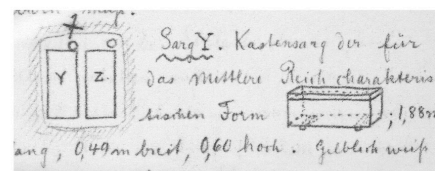 Y Z
Sarg Y. Kastensarg der für
das Mittlere Reich charakteris
tischen Form ; 1,88m
ang, 0,49m breit, 0,60 hoch. Gelblich weiß